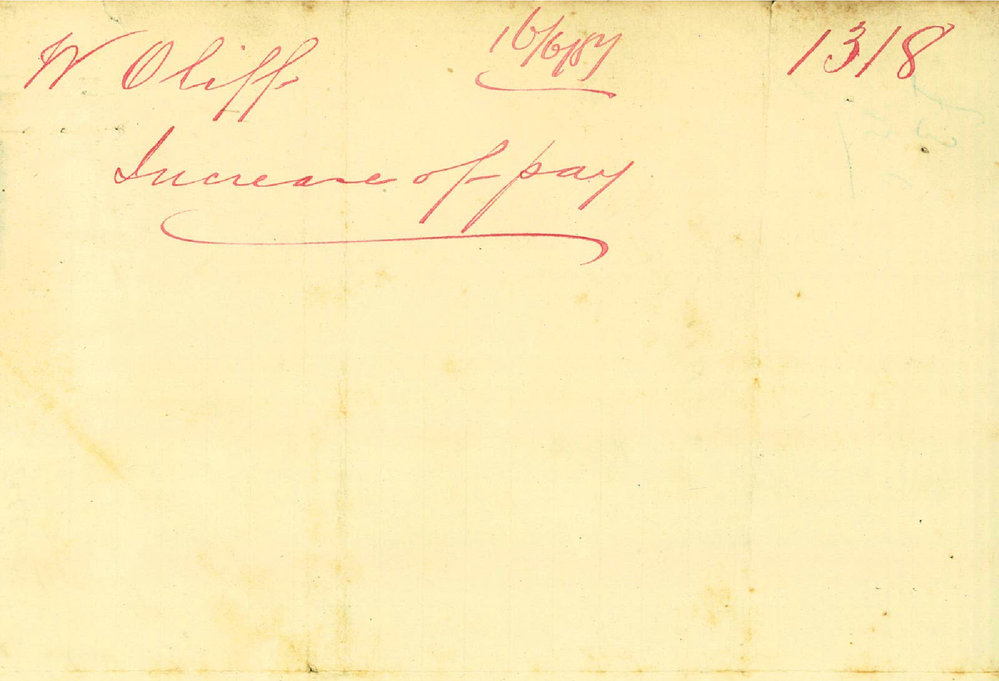 W Oliff 16/6/87 1318
Increase of pay